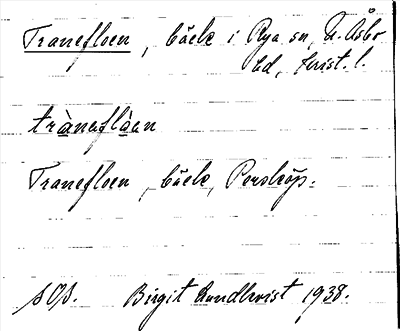 Tranefloen, bäck i Rya sn, N. Åsbo
hd, Krist. l.
trànaflàan
Tranefloen, bäck, Perstorp.
SOS. Birgit Lundkvist 1938.